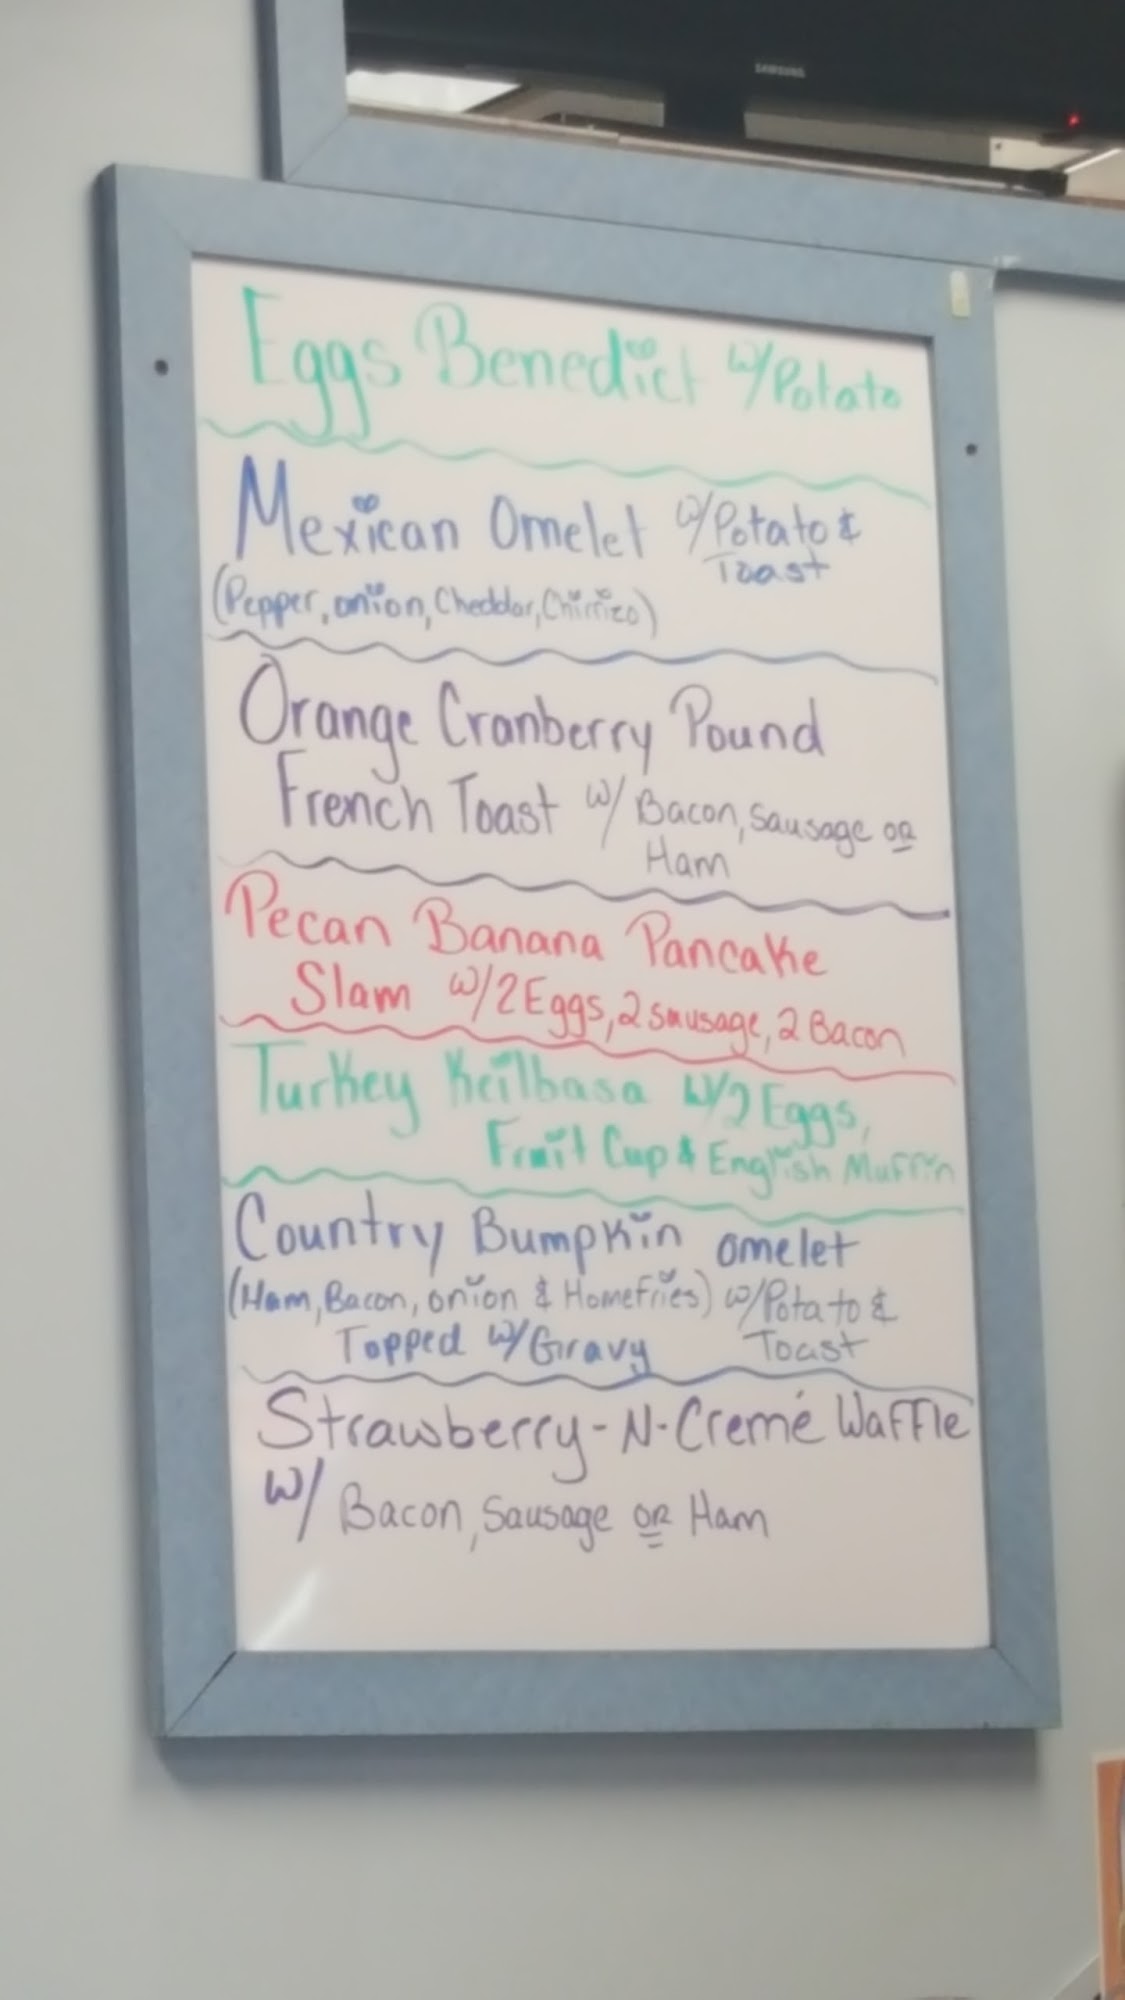 SAMSUNG
Eggs Benedict w/Potato
Mexican Omelet w/Potato &
Toast
(Pepper, onion, Cheddar, Chirrizo)
Orange Cranberry Pound
French Toast w/ Bacon, Sausage or
Ham
Pecan Banana Pancake
Slam w/2 Eggs, 2 sausage, 2 Bacon
Turkey Keilbasa w/2 Eggs,
Fruit Cup & English Muffin
Country Bumpkin omelet
(Ham, Bacon, onion & Homefries) w/Potato &
Topped w/Gravy Toast
Strawberry-N-Cremé Waffle
w/ Bacon, Sausage or Ham